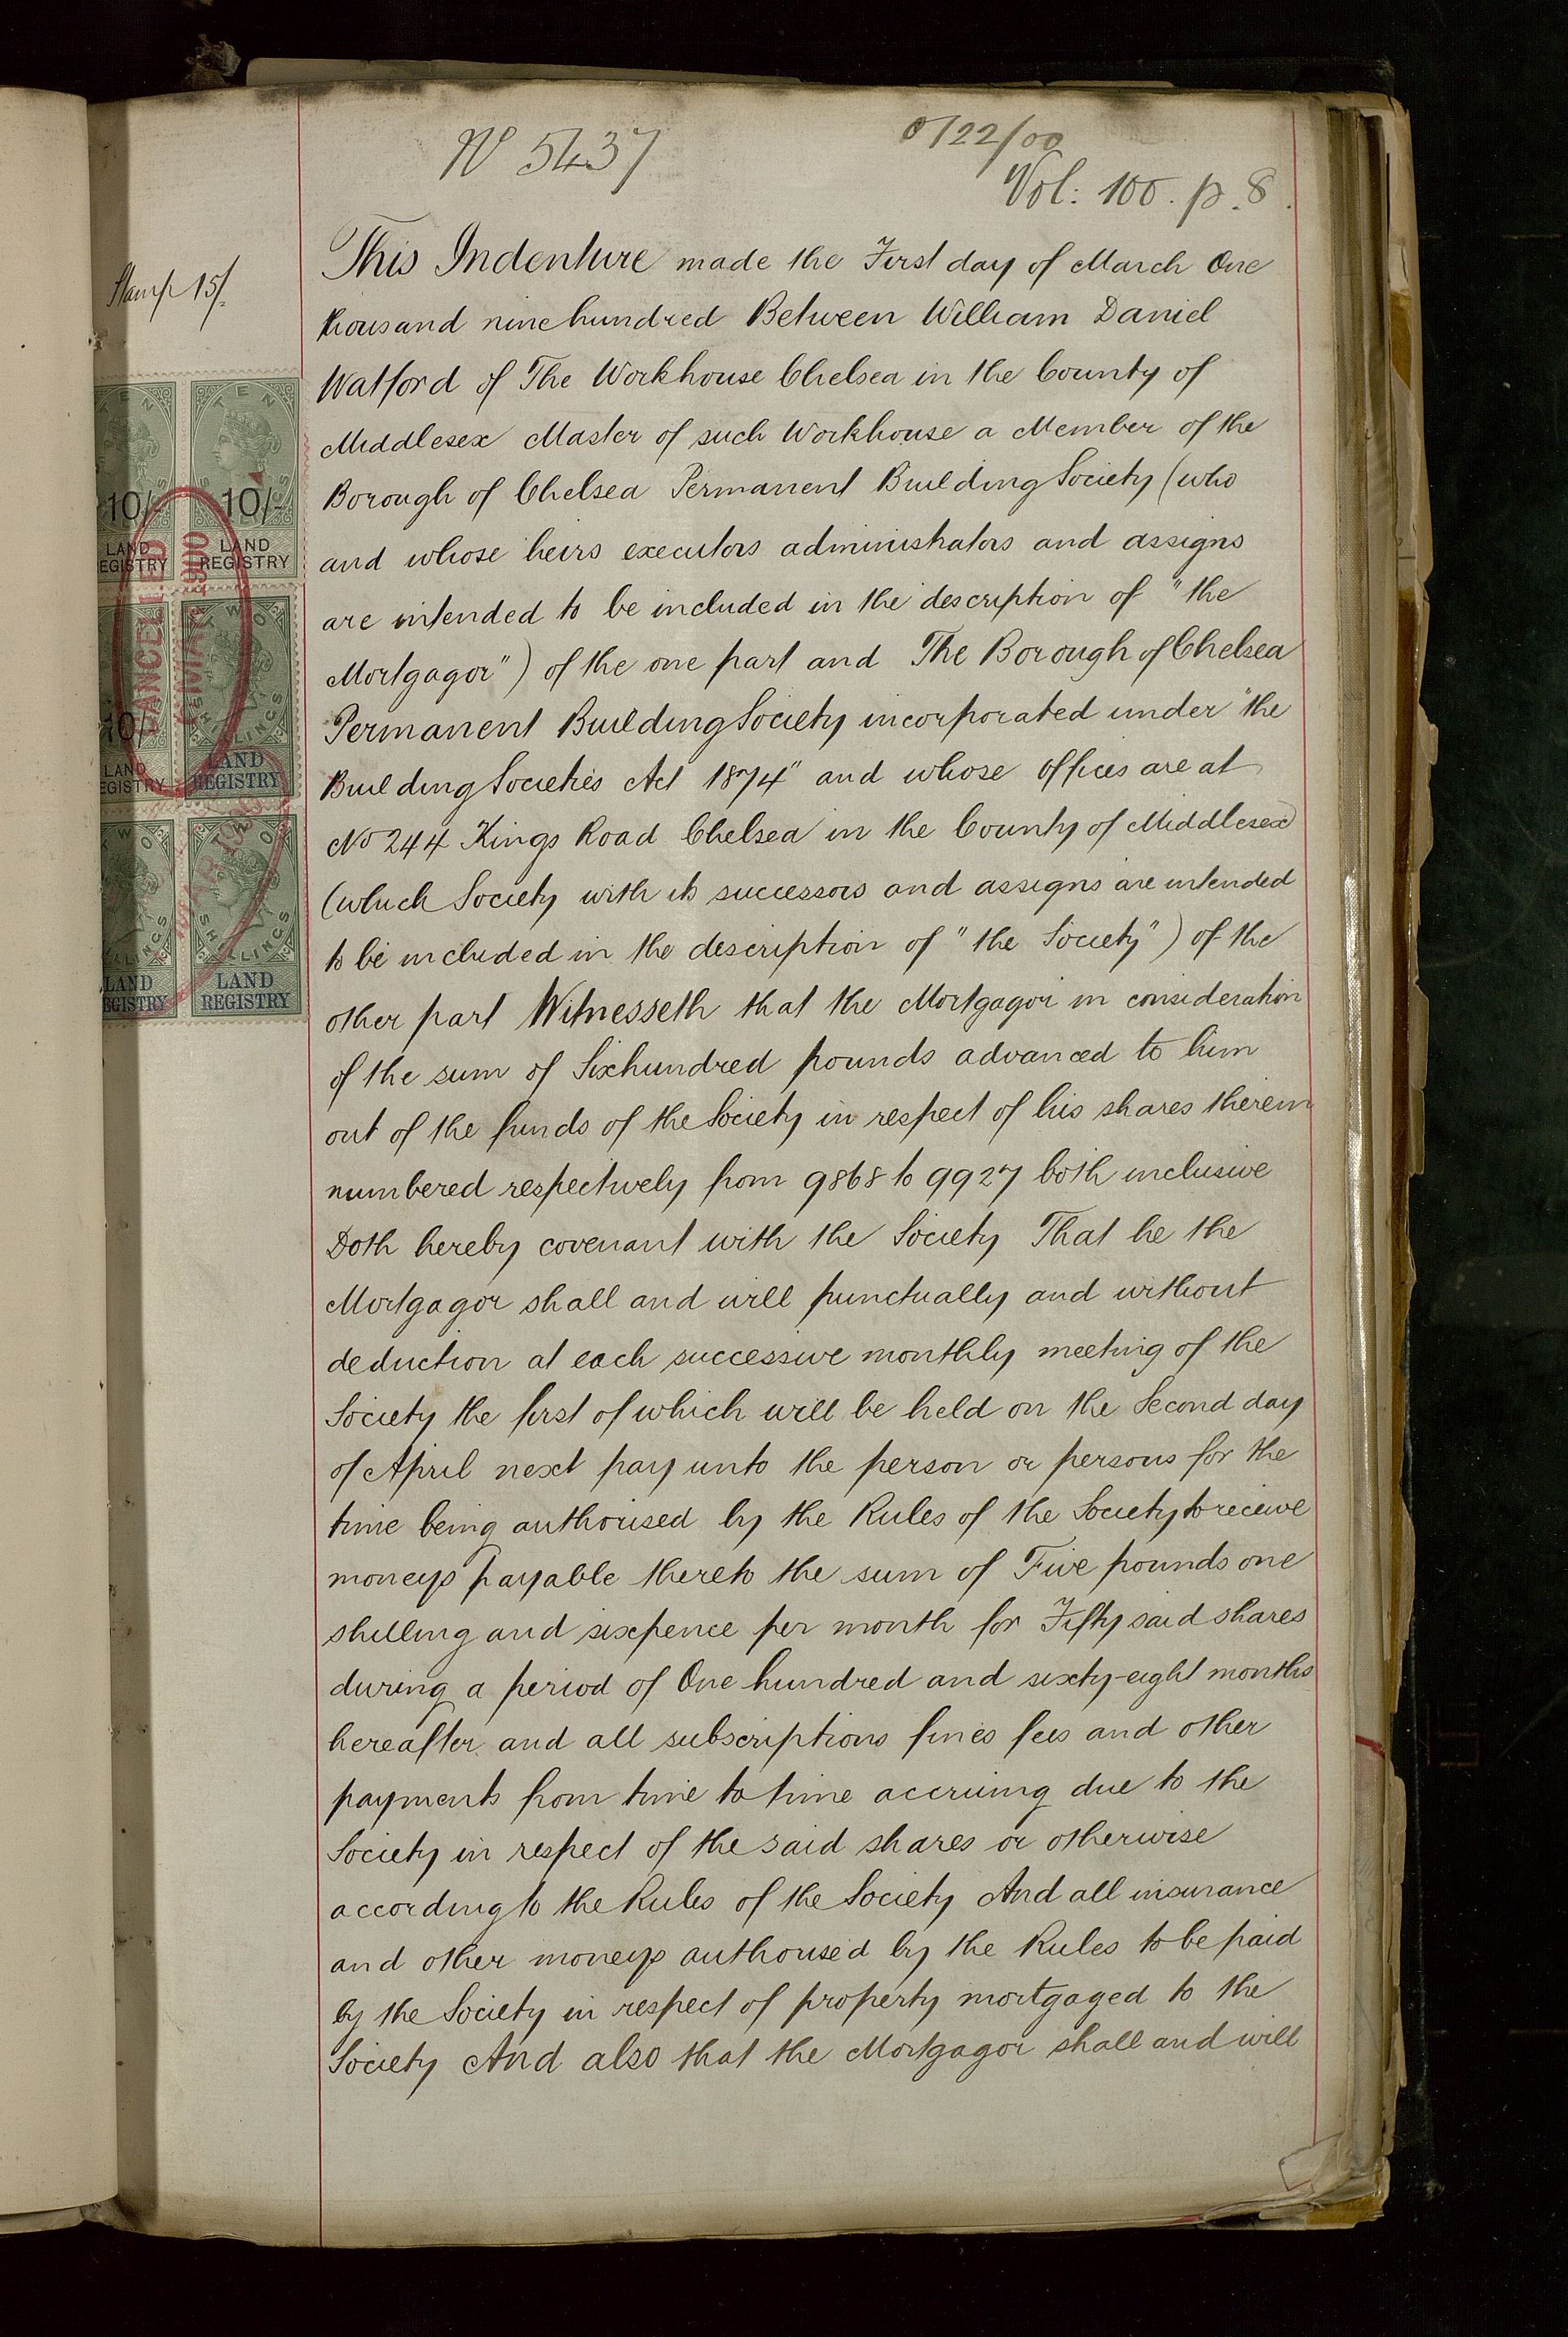 No 5437
0722/00
Vol: 100. p. 8.
Stamp 15/-
TEN
10/-
LAND
REGISTRY
TEN
10/-
LAND
REGISTRY
CANCELLED
MAR 1900
10/-
LAND
REGISTRY
TWO
SHILLINGS
LAND
REGISTRY
TWO
SHILLINGS
LAND
REGISTRY
TWO
SHILLINGS
LAND
REGISTRY
This Indenture made the First day of March One
thousand nine hundred Between William Daniel
Watford of The Workhouse Chelsea in the County of
Middlesex Master of such Workhouse a Member of the
Borough of Chelsea Permanent Building Society (who
and whose heirs executors administrators and assigns
are intended to be included in the description of "the
Mortgagor") of the one part and The Borough of Chelsea
Permanent Building Society incorporated under "the
Building Societies Act 1874" and whose offices are at
No 244 Kings Road Chelsea in the County of Middlesex
(which Society with its successors and assigns are intended
to be included in the description of "the Society") of the
other part Witnesseth that the Mortgagor in consideration
of the sum of Six hundred pounds advanced to him
out of the funds of the Society in respect of his shares therein
numbered respectively from 9868 to 9927 both inclusive
Doth hereby covenant with the Society That he the
Mortgagor shall and will punctually and without
deduction at each successive monthly meeting of the
Society the first of which will be held on the Second day
of April next pay unto the person or persons for the
time being authorised by the Rules of the Society to receive
moneys payable thereto the sum of Five pounds one
shilling and sixpence per month for Fifty said shares
during a period of One hundred and sixty-eight months
hereafter and all subscriptions fines fees and other
payments from time to time accruing due to the
Society in respect of the said shares or otherwise
according to the Rules of the Society And all insurance
and other moneys authorised by the Rules to be paid
by the Society in respect of property mortgaged to the
Society And also that the Mortgagor shall and will